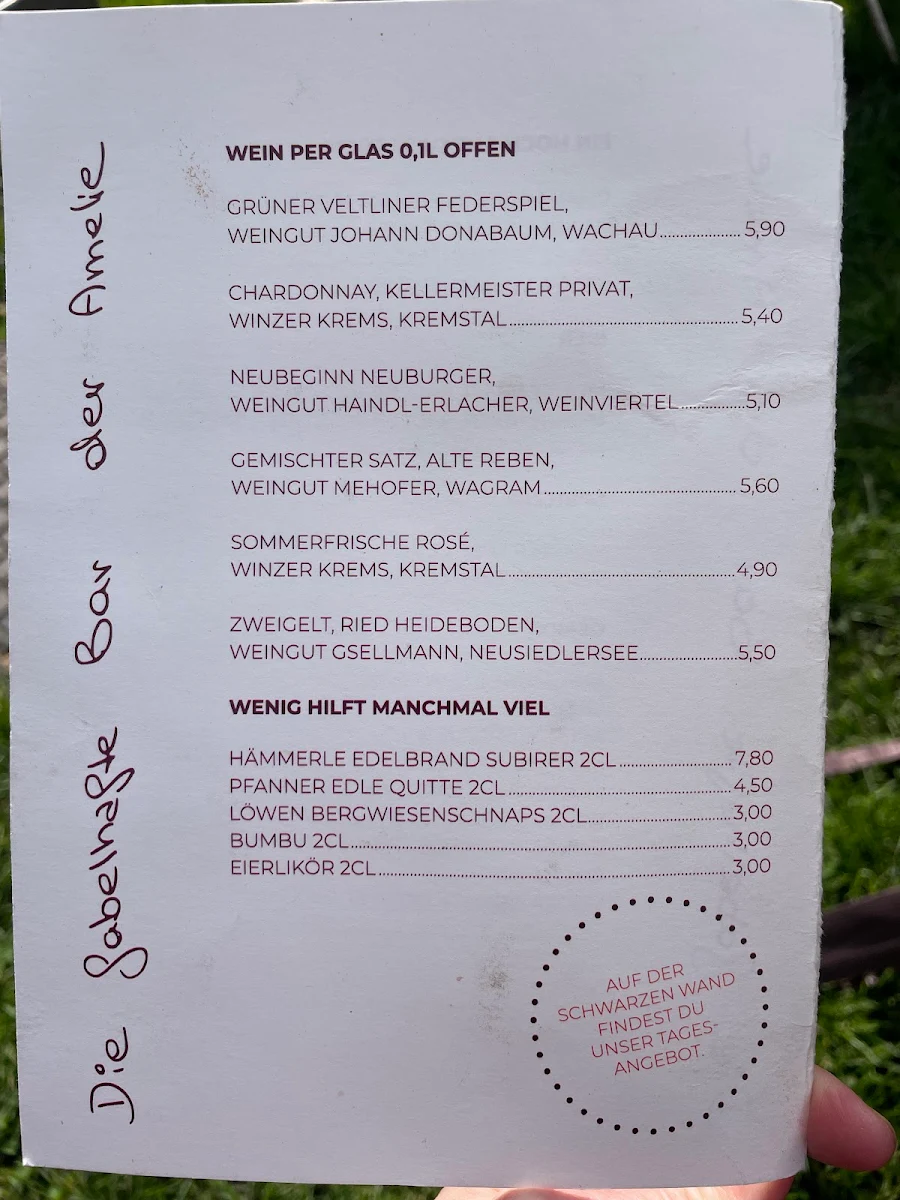 Die fabelhafte Bar der Amelie
WEIN PER GLAS 0,1L OFFEN
GRÜNER VELTLINER FEDERSPIEL,
WEINGUT JOHANN DONABAUM, WACHAU.................... 5,90
CHARDONNAY, KELLERMEISTER PRIVAT,
WINZER KREMS, KREMSTAL.................... 5,40
NEUBEGINN NEUBURGER,
WEINGUT HAINDL-ERLACHER, WEINVIERTEL....................5,10
GEMISCHTER SATZ, ALTE REBEN,
WEINGUT MEHOFER, WAGRAM.................... 5,60
SOMMERFRISCHE ROSÉ,
WINZER KREMS, KREMSTAL....................4,90
ZWEIGELT, RIED HEIDEBODEN,
WEINGUT GSELLMANN, NEUSIEDLERSEE....................5,50
WENIG HILFT MANCHMAL VIEL
HÄMMERLE EDELBRAND SUBIRER 2CL....................7,80
PFANNER EDLE QUITTE 2CL....................4,50
LÖWEN BERGWIESENSCHNAPS 2CL....................3,00
BUMBU 2CL....................3,00
EIERLIKÖR 2CL....................3,00
AUF DER
SCHWARZEN WAND
FINDEST DU
UNSER TAGES-
ANGEBOT.